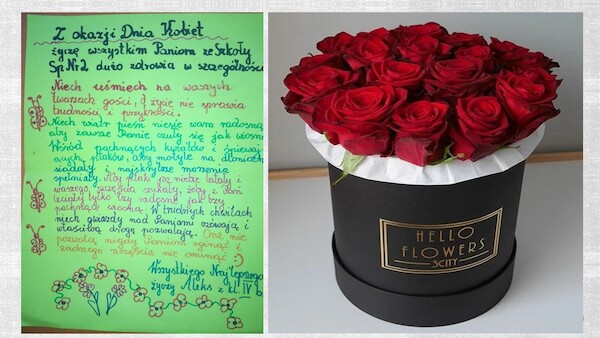 Z okazji Dnia Kobiet
życzę wszystkim Paniom ze Szkoły
Sp Nr 2 dużo zdrowia w szczególności
Niech uśmiech na waszych
twarzach gości, a życie nie sprawia
trudności i przykrości.
Niech wiatr pieśń niesie wam radosną
aby zawsze Panie czuły się jak wiosną
Wśród pachnących kwiatów i śpiewaj
ących ptaków, aby motyle na dłoniach
siadały i najskrytsze marzenia
spełniały. Aby ptaki po niebie latały i
waszego szczęścia szukały, żeby z Pań
były tylko łzy radosne jak łzy
pachnące wiosną. W trudnych chwilach
niech gwiazdy nad Paniami czuwają i
właściwą drogę pozwalają. One nie
pozwolą nigdy Paniom zginąć i
żadnego szczęścia nie ominąć :)
Wszystkiego Najlepszego
życzy Aleks z kl IV b
HELLO
FLOWERS
3CITY